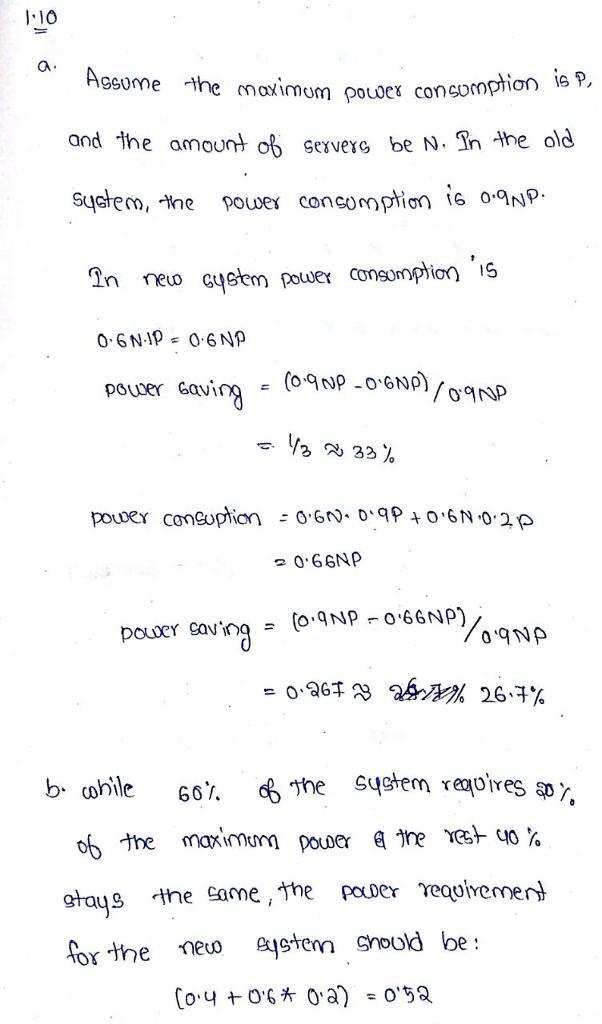 1.10
a. Assume the maximum power consumption is P,
and the amount of servers be N. In the old
system, the power consumption is 0.9NP.
In new system power consumption is
0.6N.1P = 0.6NP
power saving = (0.9NP - 0.6NP) / 0.9NP
= 1/3 ≈ 33%
power consuption = 0.6N. 0.9P + 0.6N.0.2P
= 0.66NP
power saving = (0.9NP - 0.66NP) / 0.9NP
= 0.267 ≈ 26.7%
b. while 60% of the system requires %
of the maximum power & the rest 40%
stays the same, the power requirement
for the new system should be:
(0.4 + 0.6 * 0.2) = 0.52